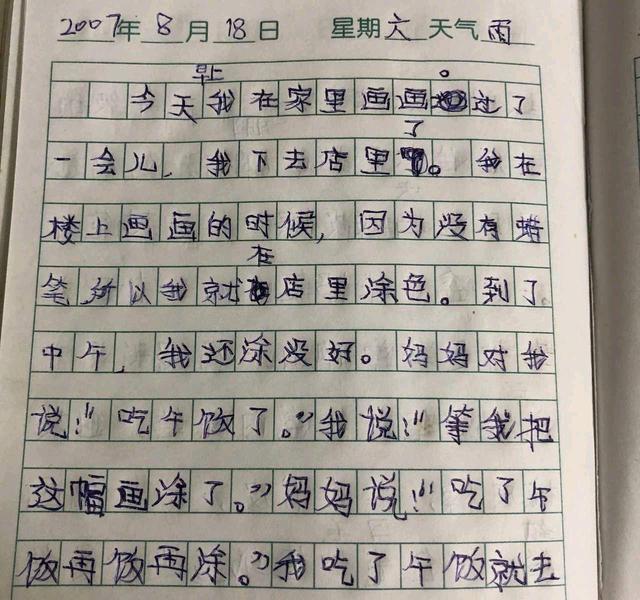 2007年8月18日 星期六 天气雨
今天早上我在家里画画。过了
一会儿，我下去店里了。我在
楼上画画的时候，因为没有蜡
笔所以我就在店里涂色。到了
中午，我还涂没好。妈妈对我
说：“吃午饭了。”我说：“等我把
这幅画涂了。”妈妈说：“吃了午
饭再饭再涂。”我吃了午饭就去